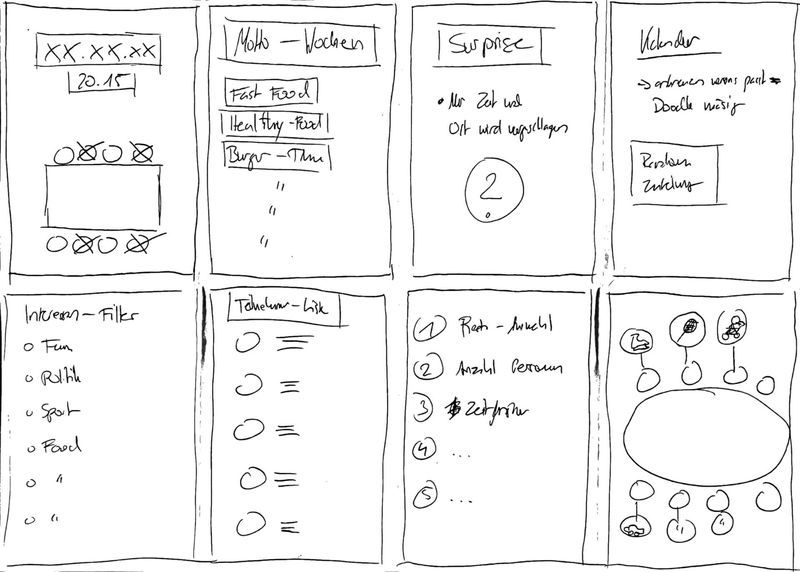 XX.XX.XX
20.15
Motto – Wochen
Fast Food
Healthy-Food
Burger – Time
"
"
"
Surprise
• Nur Zeit und
Ort wird vorgeschlagen
?
Kalender
→ ankreuzen wanns passt
Doodle mäsig
Random
Zuteilung
Interessen – Filter
o Fun
o Politik
o Sport
o Food
o "
o "
Teilnehmer – Liste
1 Rest – Auswahl
2 Anzahl Personen
3 Zeitfenster
4 ...
5 ...
" "